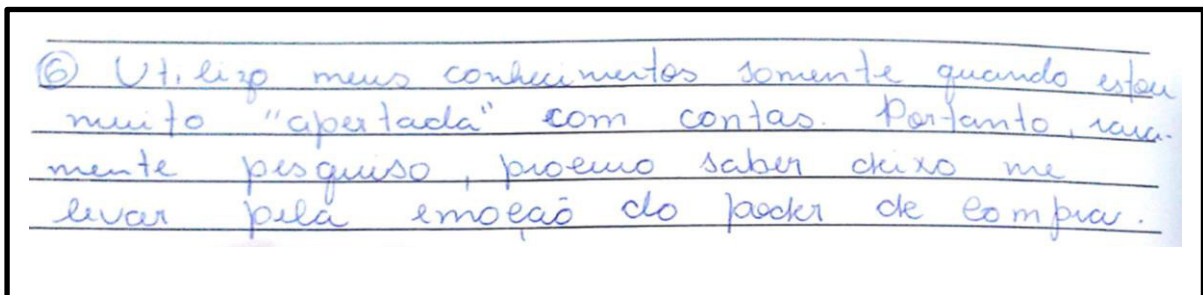 ⑥ Utilizo meus conhecimentos somente quando estou
muito "apertada" com contas. Portanto, rara-
mente pesquiso, procuro saber deixo me
levar pela emoção do poder de compra.